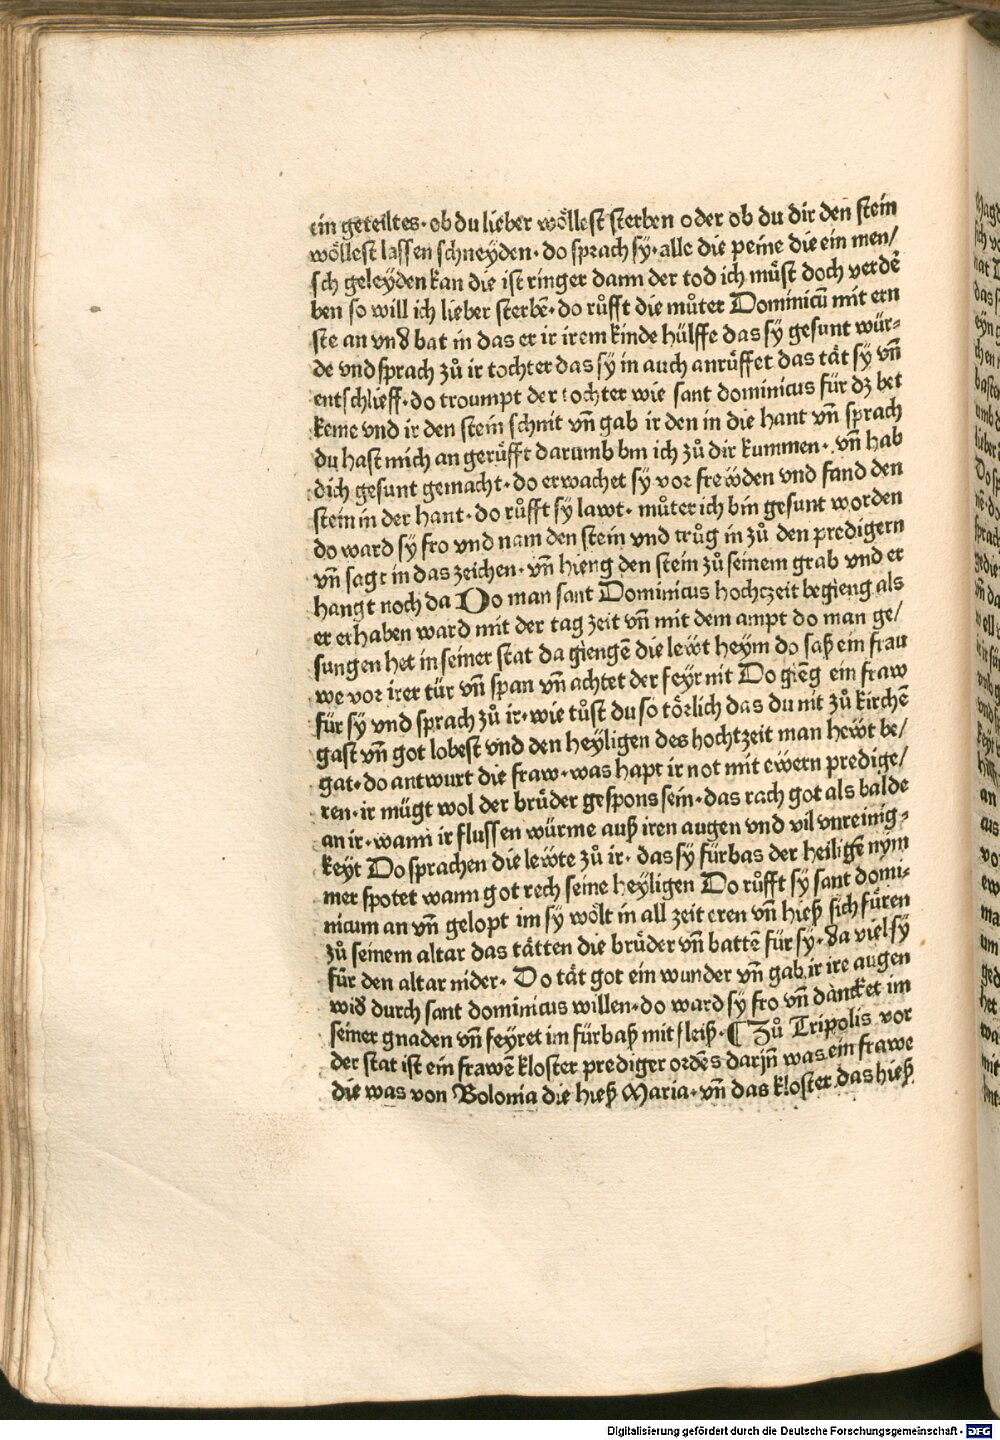 ein geteiltes· ob du lieber wöllest sterben oder ob du dir den stein
wöllest lassen schneÿden· do sprach sÿ· alle die peine die ein men/
sch geleÿden kan die ist ringer dann der tod ich můst doch verdē
ben so will ich lieber sterbē· do růfft die můter Dominicū mit ern
ste an vnd bat in das er ir irem kinde hülffe das sÿ gesunt wür⸗
de vnd sprach zů ir tochter das sÿ in auch anrůffet das tät sÿ vñ
entschlieff· do troumpt der tochter wie sant dominicus für dz bet
keme vnd ir den stein schnit vñ gab ir den in die hant vñ sprach
du hast mich an gerůfft darumb bin ich zů dir kummen· vñ hab
dich gesunt gemacht· do erwachet sÿ vor frewden vnd fand den
stein in der hant· do růfft sÿ lawt· můter ich bin gesunt worden
do ward sÿ fro vnd nam den stein vnd trůg in zů den predigern
vñ sagt in das zeichen· vñ hieng den stein zů seinem grab vnd er
hangt noch da Do man sant Dominicus hochczeit begieng als
er erhaben ward mit der tag zeit vñ mit dem ampt do man ge/
sungen het in seiner stat da giengē die lewt heÿm do saß ein frau
we vor irer tür vñ span vñ achtet der feÿr nit Do giēg ein fraw
für sÿ vnd sprach zů ir· wie tůst du so törlich das du nit zů kirchē
gast vñ got lobest vnd den heÿligen des hochtzeit man hewt be/
gat· do antwurt die fraw· was hapt ir not mit ewern predige/
ren· ir mügt wol der brůder gespons sein· das rach got als balde
an ir· wann ir flussen würme auß iren augen vnd vil vnreinig⸗
keyt Do sprachen die lewte zů ir· das sÿ fürbas der heiligē nym
mer spotet wann got rech seine heÿligen Do růfft sÿ sant domi⸗
nicum an vñ gelopt im sÿ wölt in all zeit eren vñ hieß sich fůren
zů seinem altar das tätten die brůder vñ battē für sÿ· da viel sÿ
für den altar nider· Do tät got ein wunder vñ gab ir ire augen
wid durch sant dominicus willen· do ward sÿ fro vñ däncket im
seiner gnaden vñ feÿret im fürbaß mit fleiß· ¶ Zů Tripolis vor
der stat ist ein frawē kloster prediger ordēs darjñ was ein frawe
die was von Bolonia die hieß Maria· vñ das kloster das hieß
Digitalisierung gefördert durch die Deutsche Forschungsgemeinschaft - DFG